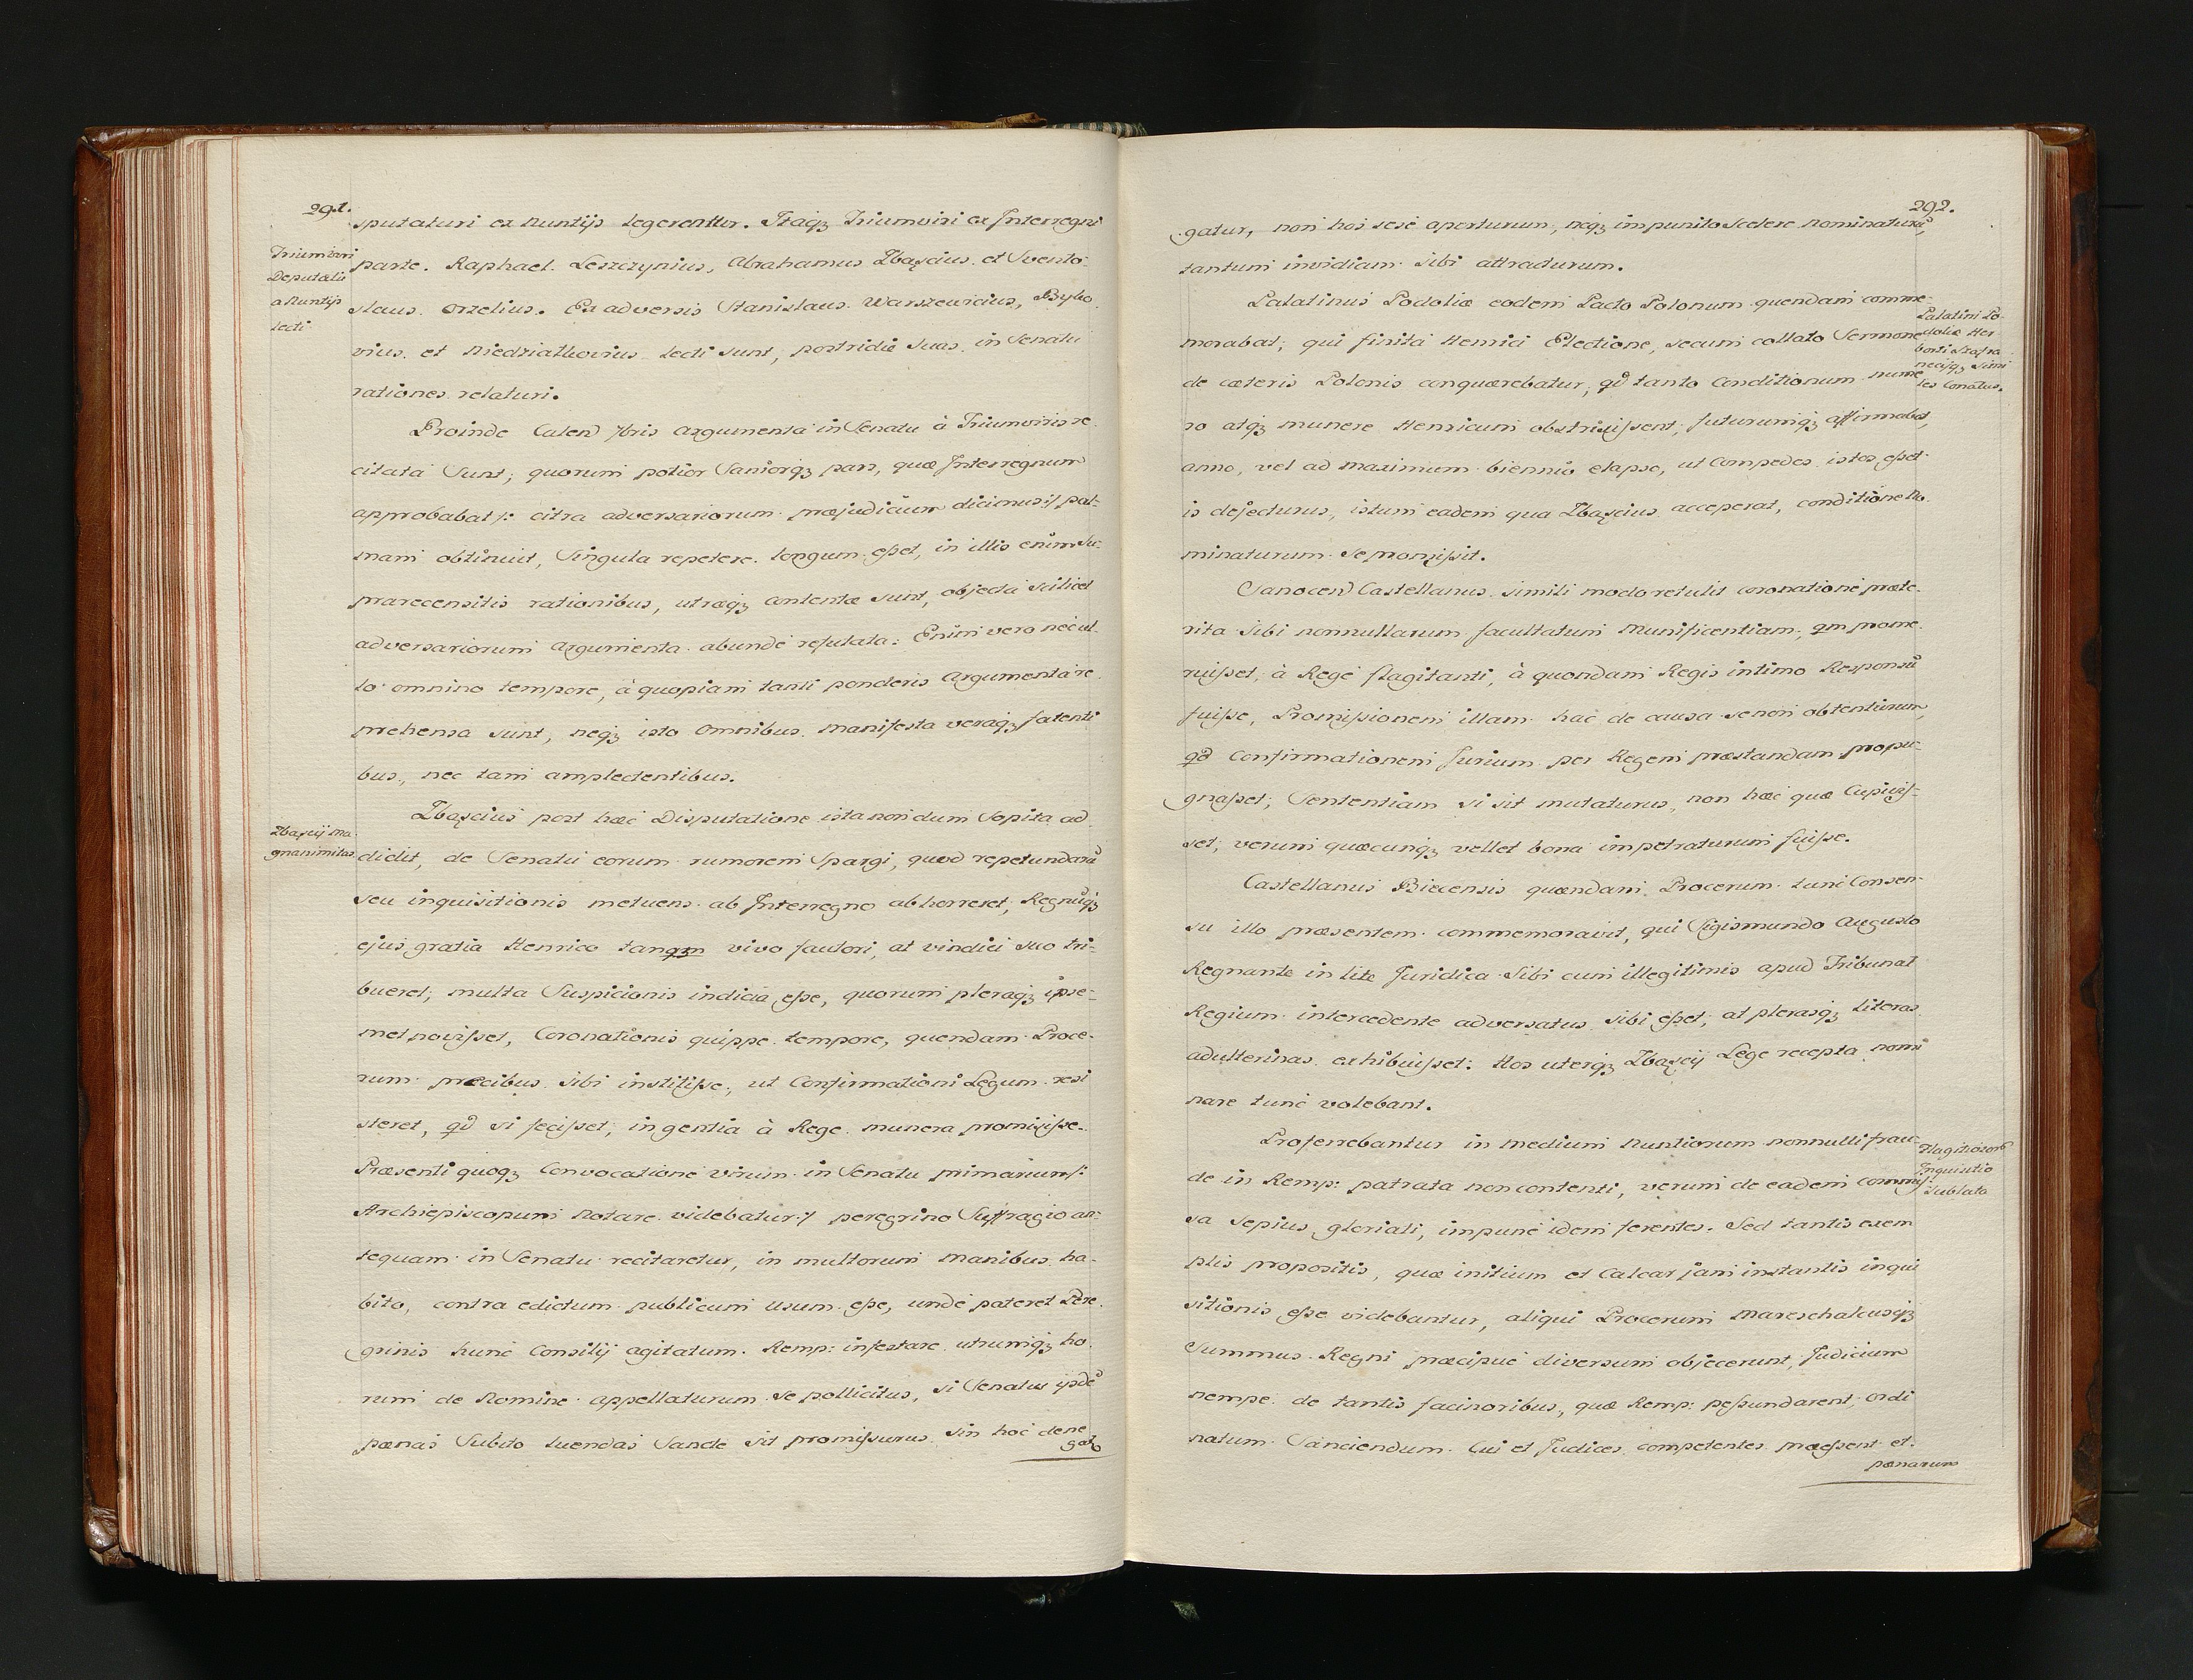 291.
sputaturi ex Nuntijs legerentur. Itaqȝ Triumviri ex Interregni
Triumviri
Deputati
a Nuntijs
lecti
parte. Raphael. Leszczynius, Abrahamus Zbąscius. et Svento-
slaus. Orzelius. Ex adversis Stanislaus. Warszewicius, Bybo
vius. et Niedziathovius lecti sunt, postridie suas. in Senatu
rationes relaturi.
Proinde Calend 7bris argumenta in Senatu à Triumviris re
citata Sunt; quorum potior Saniorqȝ pars, quæ Interregnum
approbabat /: citra adversariorum præjudicium dicimus :/ pal-
mam obtinuit, Singula repetere. longum eſset, in illis enim su-
præcensitis rationibus, utræqȝ contentæ sunt, objecta scilicet
adversariorum argumenta abundè refutata: Enim vero nec ul-
lo omnino tempore, à quopiam tanti ponderis argumenta re
prehensa sunt, neqȝ isto omnibus. manifesta veraqȝ fatenti
bus, nec tam amplectentibus.
Zbąscij ma-
gnanimitas
Zbąscius post hæc Disputatione ista nondum Sopita ad
didit, de Senatu eorum rumorem Spargi, quod repetundarū
seu inquisitionis metuens ab Interregno abhorreret, Regnūqȝ
ejus gratia Henrico tanqm vivo fautori, at vindici suo tri-
bueret; multa Suspicionis indicia eſse, quorum pleraqȝ ipse-
met noviſset, Coronationis quippe tempore, quendam Proce-
rum precibus sibi institiſse, ut Confirmationi Legum resi
steret, qd si feciſset, ingentia à Rege munera promisiſse.
Præsenti quoqȝ Convocatione virum in Senatu primarium /:
Archiepiscopum notare videbatur :/ peregrino Suffragio an-
tequam in Senatu recitaretur, in multorum manibus ha-
bito, contra edictum publicum usum eſse, unde pateret Pere
grinis hunc Consilij agitatum. Remp: infestare utrumqȝ ho
rum de Nomine appellaturum se pollicitus, si Senatus ijsdē
pœnas Subito luendas Sancte sit promiſsurus. sin hoc dene
gat
292.
gatur, non hos sese aperturum, neqȝ impunito Scelere nominaturū,
tantum invidiam sibi attracturum.
Palatini Po-
doliæ Her
borti Stafra
necijqȝ simi
les Conatus.
Palatinus Podoliæ eodem Pacto Polonum quendam comme-
morabat; qui finita Henrici Electione, secum collato Sermone
de cæteris Polonis conquærebatur, qd tanto Conditionum nume
ro atqȝ munere Henricum obstrixiſsent, futurumqȝ affirmabat,
anno, vel ad maximum biennio elapso, ut Compedes istos eſset
is dejecturus, istum eadem qua Zbąscius acceperat, conditione no
minaturum se promisit.
Sanocen Castellanus simili modo retulit coronatione præte-
rita sibi nonnullarum facultatum Munificentiam, qm prome
ruiſset, à Rege flagitanti, à quondam Regis intimo Responsū
fuiſse, Promiſsionem illam hac de causa se non obtenturum,
qd Confirmationem Jurium per Regem præstandam propu-
gnaſset; Sententiam si sit mutaturus, non hæc quæ Cupiviſ-
set, verum quæcunqȝ vellet bona impetraturum fuiſse.
Castellanus Biecensis quændam Procerum tunc Consen-
su illo præsentem commemoravit, qui Sigismundo Augusto
Regnante in lite Juridica Sibi cum illegitimis apud Tribunal
Regium intercedente adversatus sibi eſset, at plerasqȝ literas
adulterinas exhibuiſset: Hos uterqȝ Zbąscij Lege recepta nomi
nare tunc volebant.
Flagitiorum
Inquisitio
sublata
Proferrebantur in medium Nuntiorum nonnulli frau-
de in Remp: patrata non contenti, verum de eadem commiſ-
sa sepius gloriati, impunè idem ferentes. Sed tantis exem
plis propositis, quæ initium et Calcar jam instantis inqui
sitionis eſse videbantur, aliqui Procerum Mareschalcusqȝ
Summus Regni præcipuè diversum objecerunt, Judicium
nempe de tantis facinoribus, quæ Remp: peſsundarent, ordi
natum Sanciendum. Cui et Judices competentes præeſsent et.
pœnarum